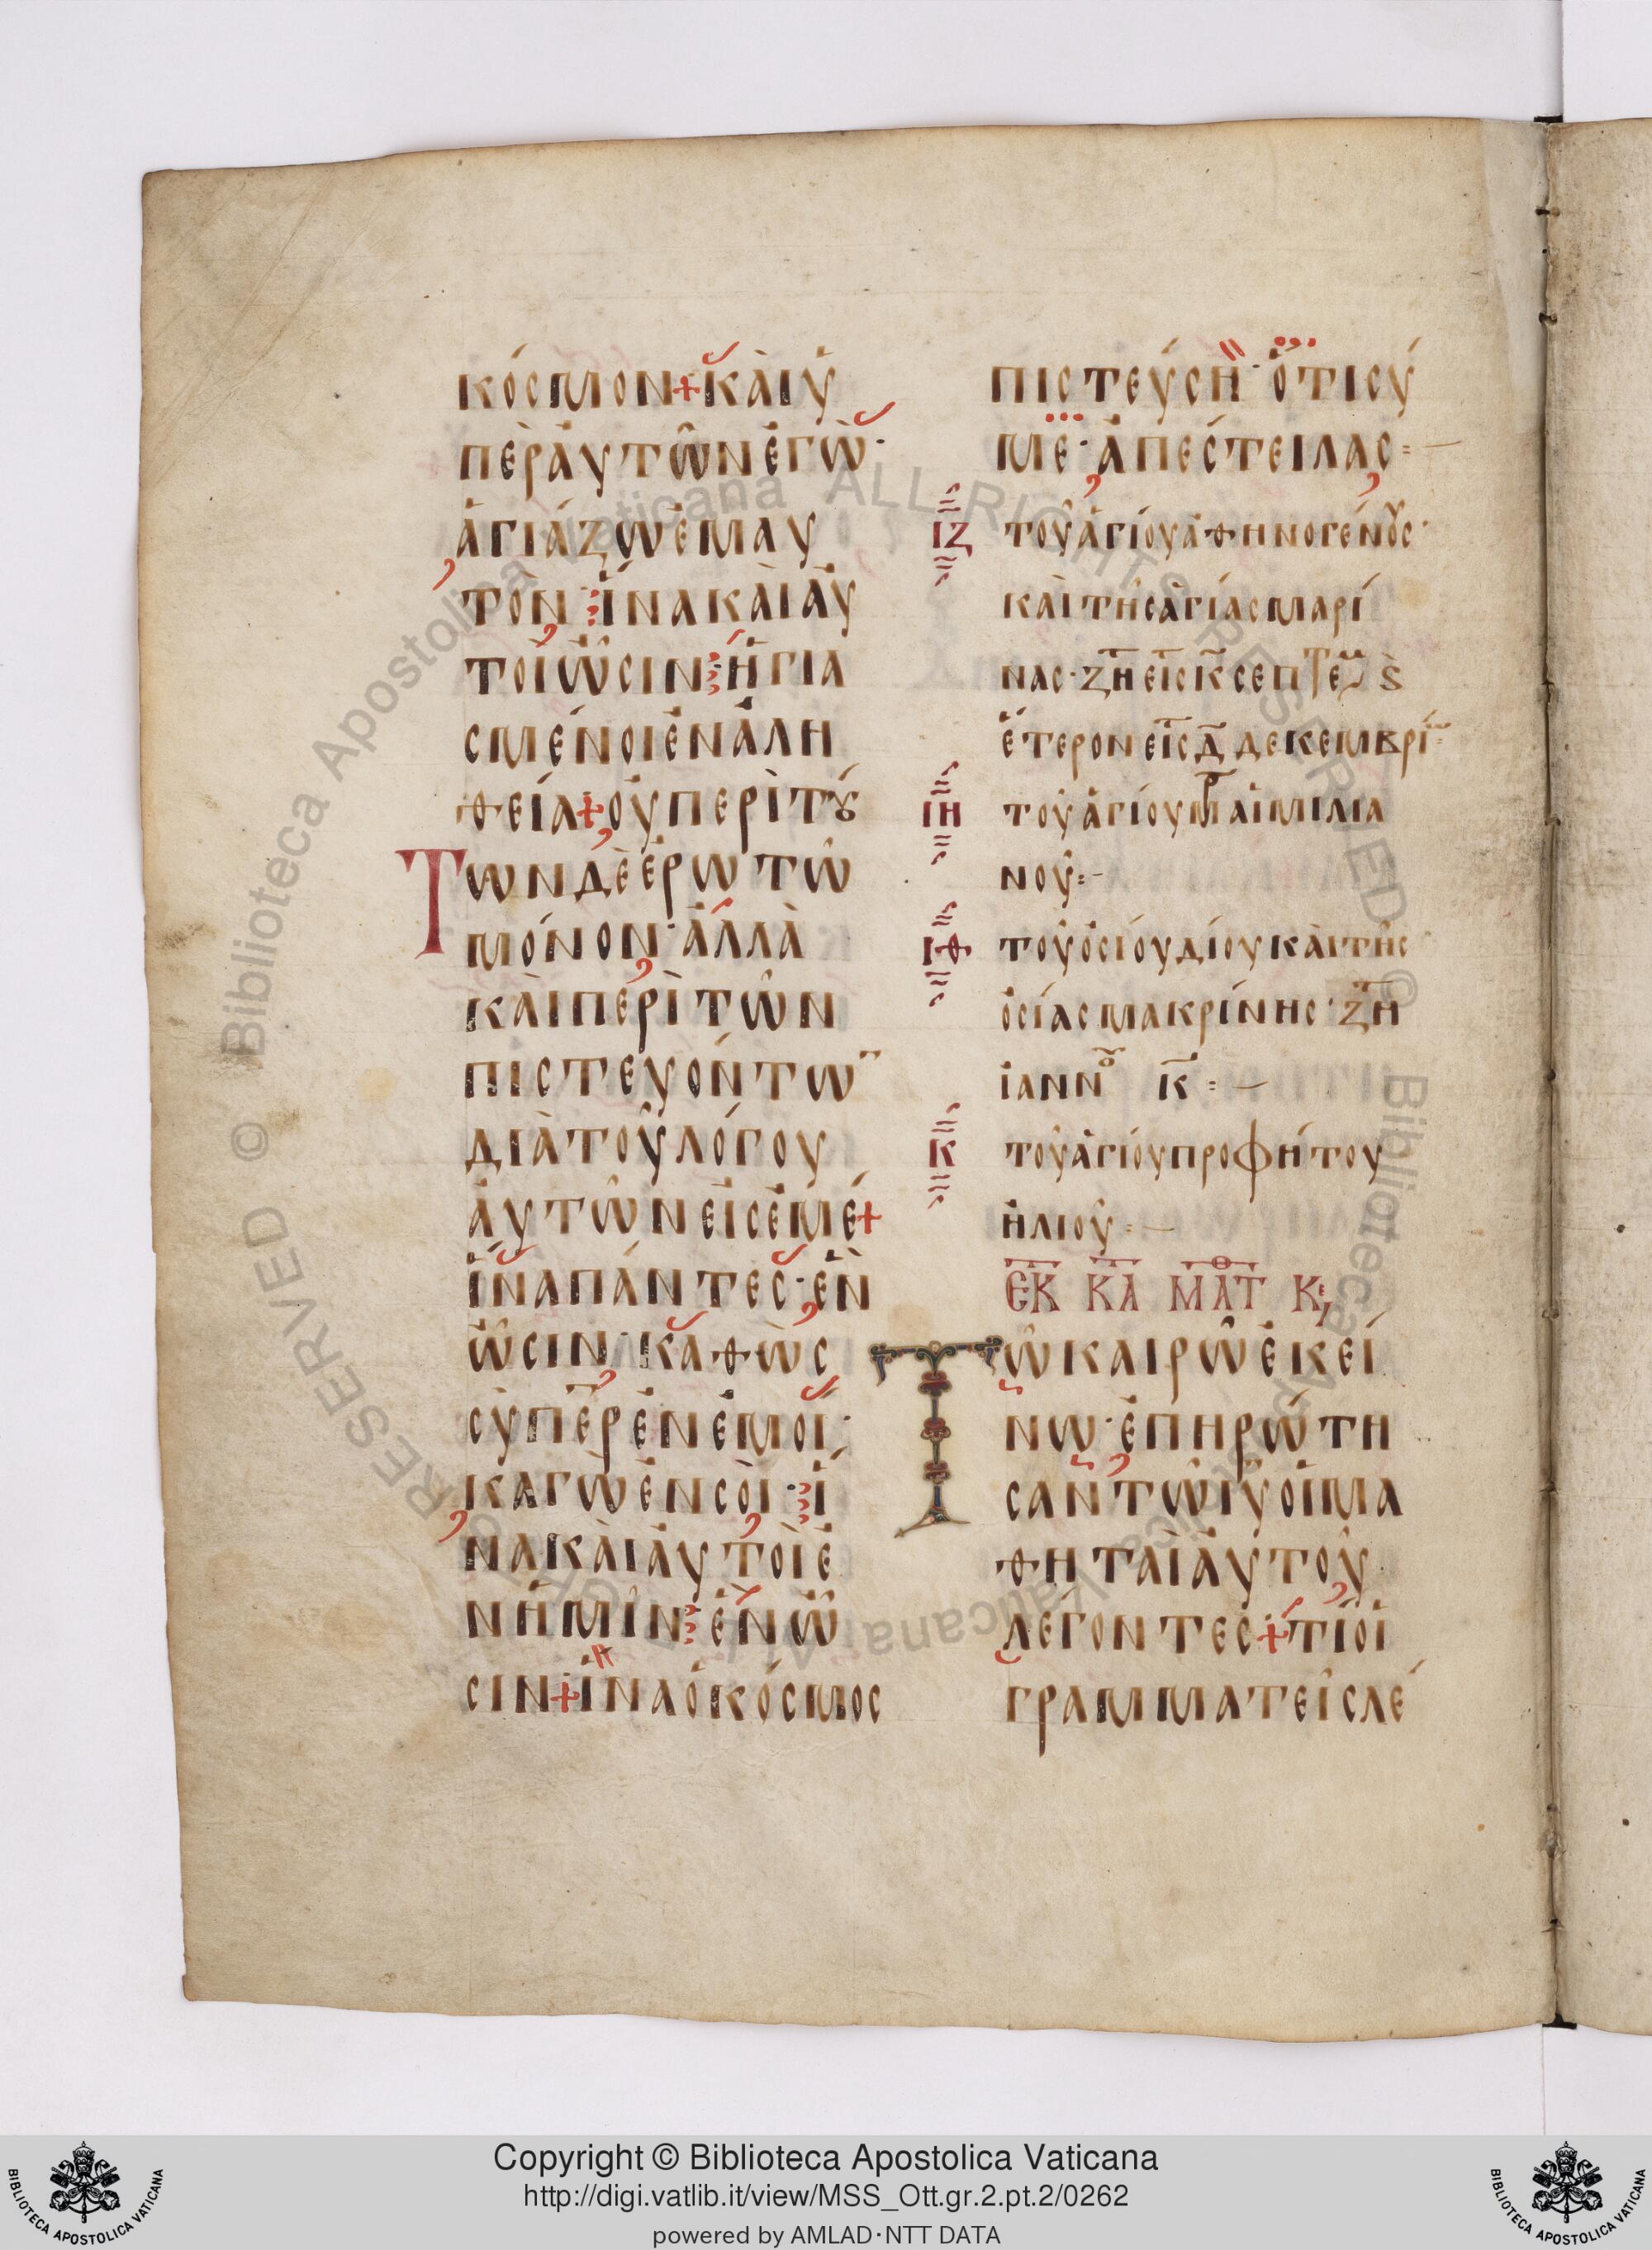 κόσμον + καὶ ὑ
πὲρ αὐτῶν ἐγὼ·
ἁγιάζω ἐμαυ
τόν· ἵνα καὶ αὐ
τοὶ ὦσιν ἡγια
σμένοι ἐν ἀλη
θεία + οὐ περὶ τού
Των δὲ ἐρωτῶ
μόνον· ἀλλὰ
καὶ περὶ τῶν
πιστευόντω̅
διὰ τοῦ λόγου
αὐτῶν εἰς ἐμέ +
ἵνα πάντες· ἓν
ὦσιν· καθὼς
σὺ π̅ε̅ρ ἐν ἐμοί·
καγὼ ἐν σοὶ· ἵ
να καὶ αὐτοὶ ἐ
ν ἡμῖν ἓν ὦ
σιν + ἵνα ὁ κόσμος
πιστεύση· ὅτι σύ
με· ἀπέστειλας
ΙΖ τοῦ ἁγίου ἀθηνογένους·
καὶ τῆς ἁγίας μαρί
νας· ζη εἰς κ σεπτεμ ς
ἕτερον εἰς δ δεκεμβρί
ΙΗ τοῦ ἁγίου μρ αἰμιλια
νοῦ
ΙΘ τοῦ ὁσίου δίου καὶ τῆς
ὁσίας μακρίνης· ζη
ἰανν κ
Κ τοῦ ἁγίου προφήτου
ἡλιού
ΕΚ ΚΑ ΜΑΤ Κ,
Τῶ καιρῶ ἐκεί
νω· ἐπηρώτη
σαν τῶ ἰυ οἱ μα
θηταὶ αὐτοῦ
λέγοντες + τί οἱ
γραμματεῖς λέ
Copyright © Biblioteca Apostolica Vaticana
http://digi.vatlib.it/view/MSS_Ott.gr.2.pt.2/0262
powered by AMLAD·NTT DATA
BIBLIOTECA APOSTOLICA VATICANA
BIBLIOTECA APOSTOLICA VATICANA